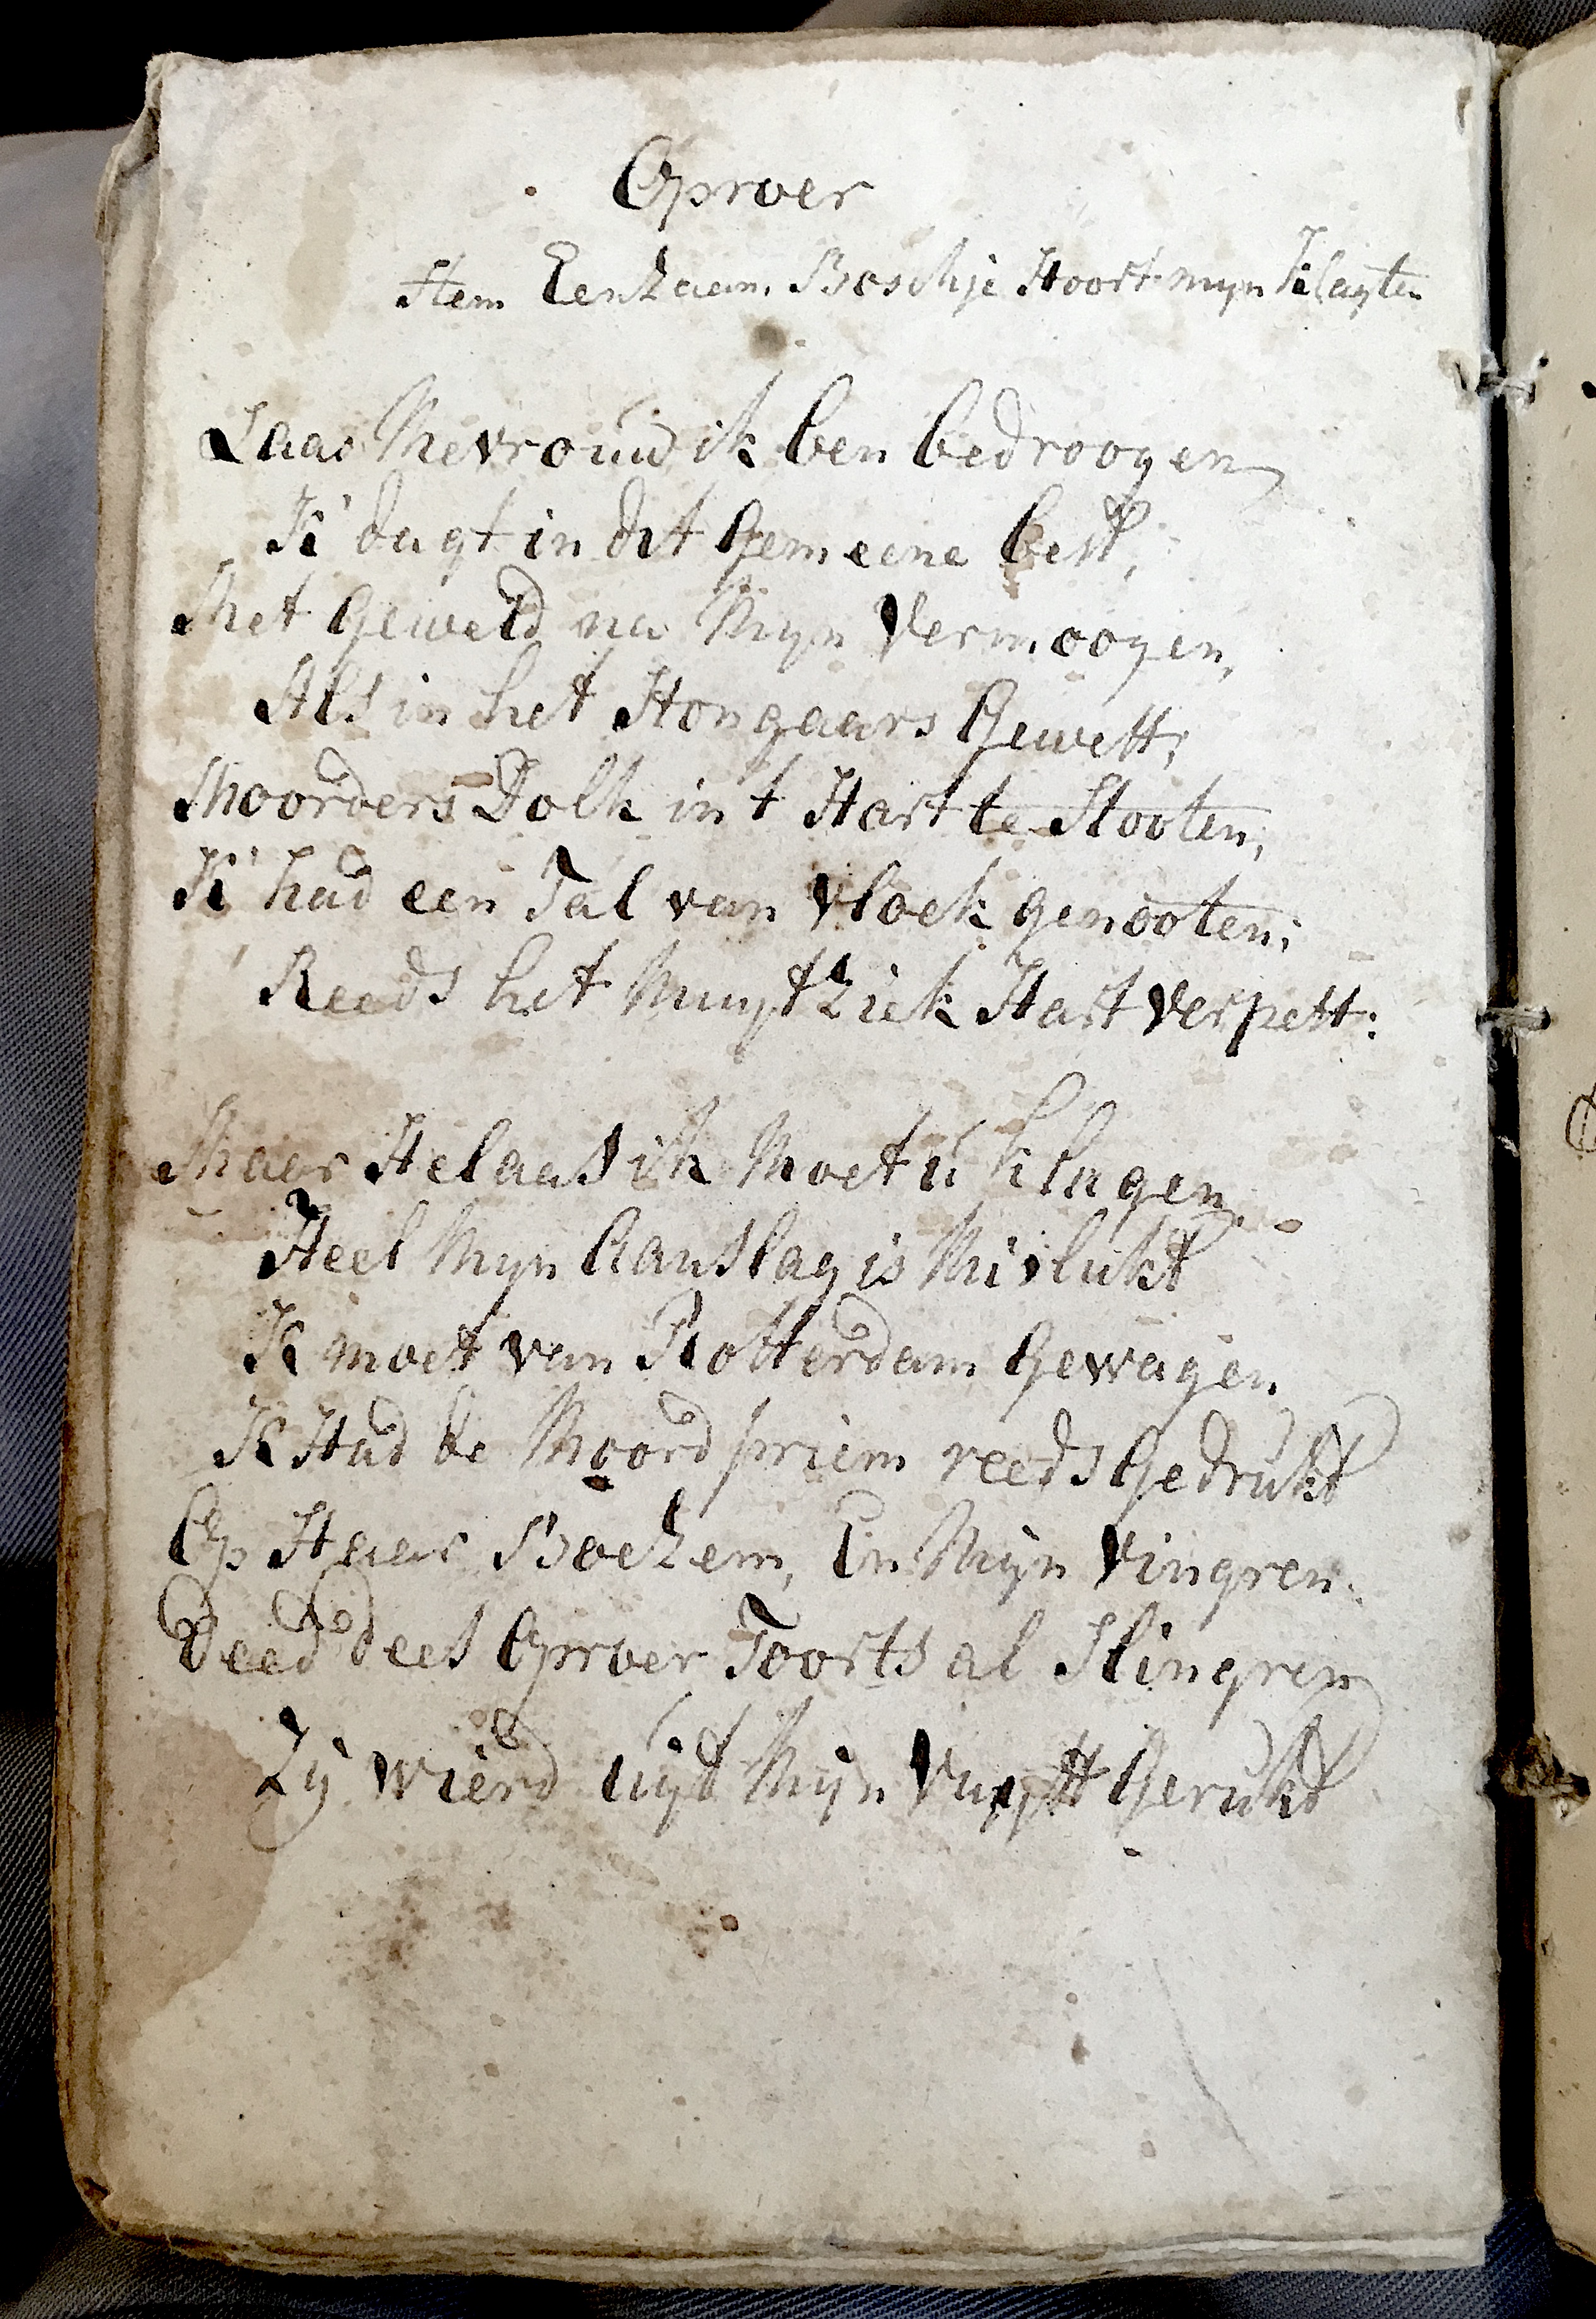 Oproer
Stem Eenzaam Boschje Hoort mijn Klagten
Laas Mevrouw ik ben bedroogen
K' dagt in dit Gemeene best,
Met Geweld na Mijn Vermoogen,
Als in het Hongaars Gewest;
Moorders Dolk in t Hart te Stooten,
K' had een Tal van vloek genooten;
Reeds het Muijtziek Hart verpest:
Maar Helaas ik Moet u klagen
Heel Mijn Aanslag is Mislukt
K moet van Rotterdam Gewagen
K Had de Moord priem reeds Gedrukt
Op Haar Boezem, En Mijn Vingren
Deed dees Oproer Toorts al Slingren
Zij wierd uijt Mijn Vuijst Gerukt